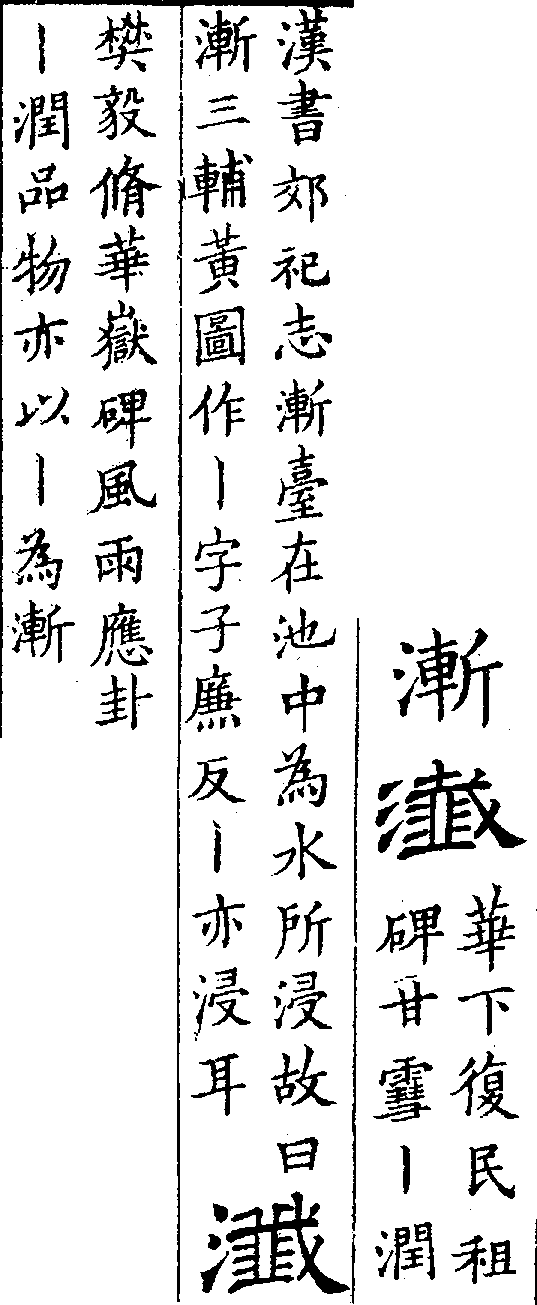 漸
瀸
華下復民租
碑甘䨮丨潤
漢書郊祀志漸臺在池中為水所浸故曰
漸三輔黃圖作丨字子㢘反丨亦浸耳
瀸
樊毅脩華嶽碑風雨應卦
丨潤品物亦以丨為漸